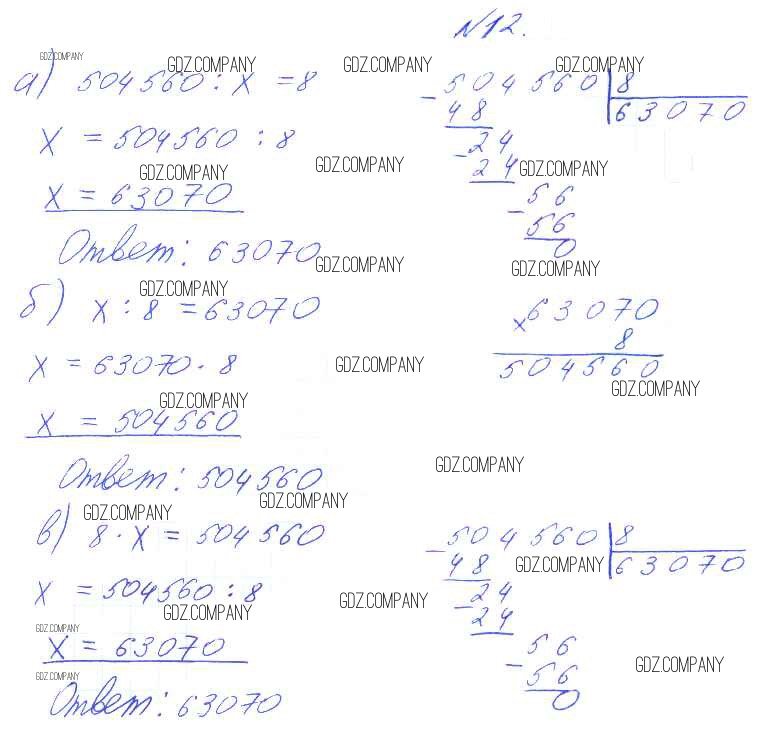 №12.
GDZ.COMPANY
GDZ.COMPANY GDZ.COMPANY GDZ.COMPANY
а) 504560 : х = 8
504560 | 8
- 48 | 63070
х = 504560 : 8
24
GDZ.COMPANY GDZ.COMPANY - 24 GDZ.COMPANY
х = 63070
56
- 56
0
Ответ: 63070
GDZ.COMPANY GDZ.COMPANY
GDZ.COMPANY
б) х : 8 = 63070
63070
× 8
504560
х = 63070 · 8
GDZ.COMPANY
GDZ.COMPANY
GDZ.COMPANY
х = 504560
GDZ.COMPANY
Ответ: 504560
GDZ.COMPANY
GDZ.COMPANY
в) 8 · х = 504560
504560 | 8
- 48 | 63070
GDZ.COMPANY
х = 504560 : 8
24
- 24
GDZ.COMPANY
GDZ.COMPANY
GDZ.COMPANY
х = 63070
56
- 56
0
GDZ.COMPANY
GDZ.COMPANY
Ответ: 63070